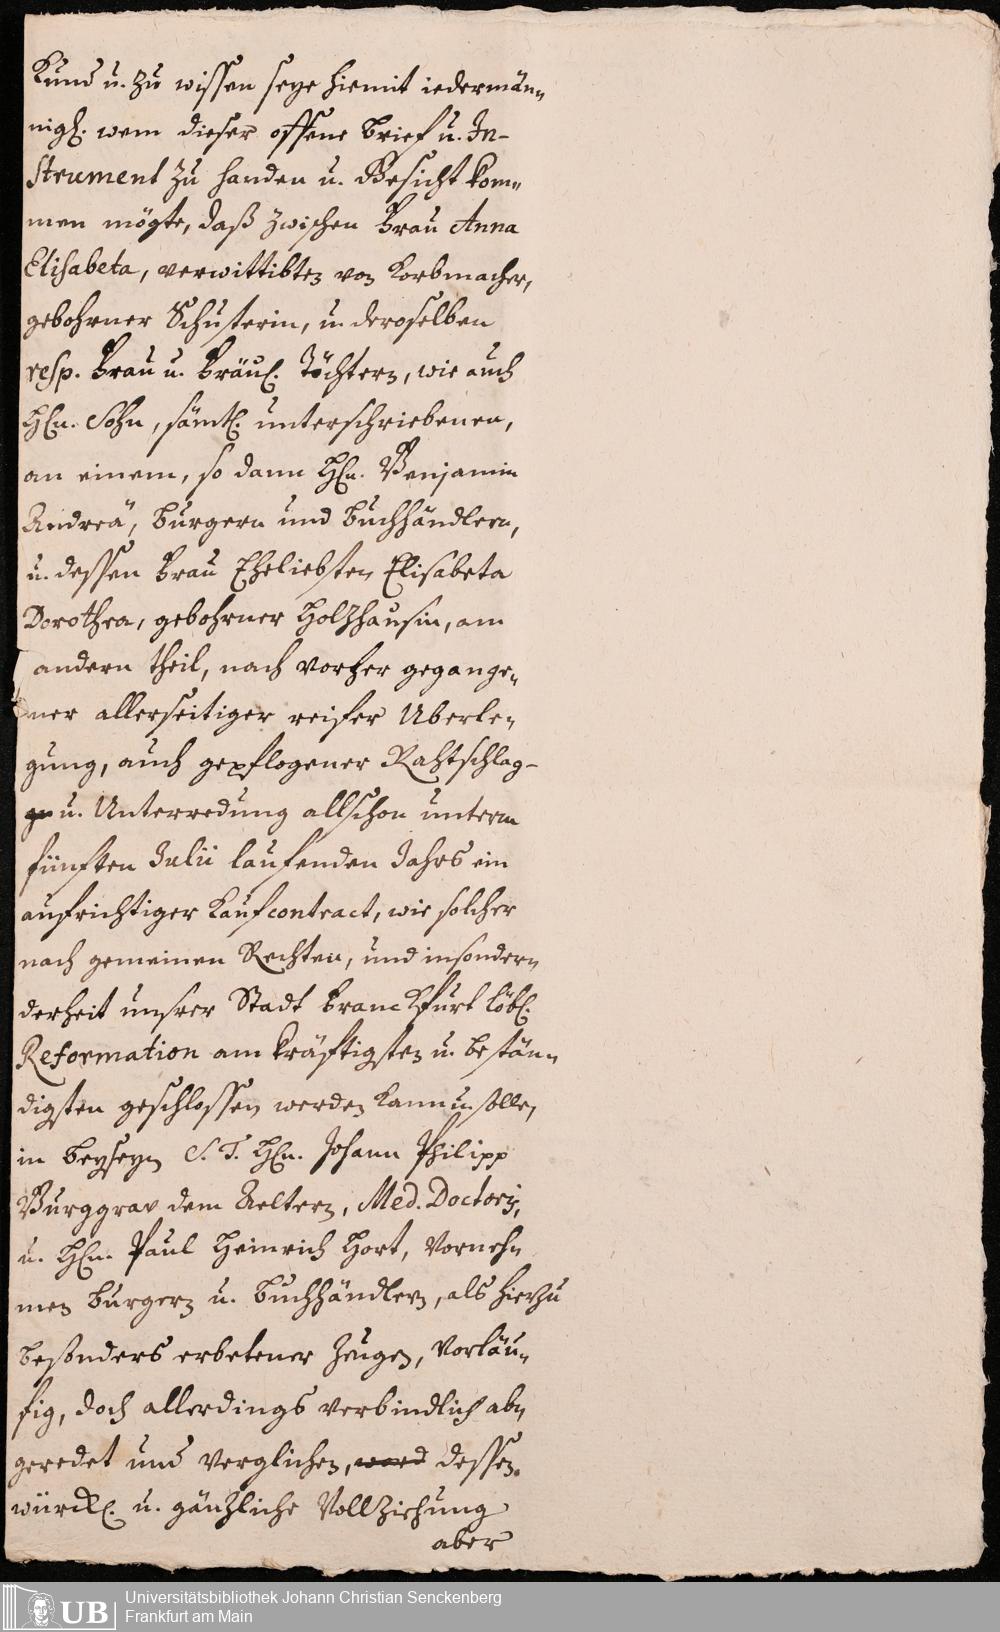 Kund u. zu wissen seye hiemit iedermän-
nigl. wem dieser offene brief u. In-
strument zu handen u. Gesicht kom-
men mögte, daß zwischen Frau Anna
Elisabeta, verwittibten von Korbmacher,
gebohrner Schusterin, u. deroselben
resp. Frau u. Fräul. Töchtern, wie auch
Hln. Sohn, sämtl. unterschriebenen,
an einem, so dann Hln. Benjamin
Andreä, burgern und buchhändlern,
u. dessen Frau Eheliebsten Elisabeta
Dorothea, gebohrner Holzhausin, am
andern theil, nach vorher gegange-
ner allerseitiger reifer Uberle-
gung, auch gepflogener Rahtschlag-
u. Unterredung allschon unterm
fünften Julii laufenden Jahrs ein
aufrichtiger Kaufcontract, wie solcher
nach gemeinen Rechten, und insondern
derheit unsrer Stadt Franckfurt löbl.
Reformation am kräftigsten u. bestän-
digsten geschlossen werden kann u. solle,
in beyseyn S. T. Hln. Johann Philipp
Burggrav dem Aeltern, Med. Doctoris,
u. Hln. Paul Heinrich Hort, Vorneh-
men burgern u. buchhändlern, als hierzu
besonders erbetener Zeugen, vorläu-
fig, doch allerdings verbindlich ab-
geredet und verglichen, ward dessen
würckl. u. gänzliche Vollziehung
aber
UB
Universitätsbibliothek Johann Christian Senckenberg
Frankfurt am Main